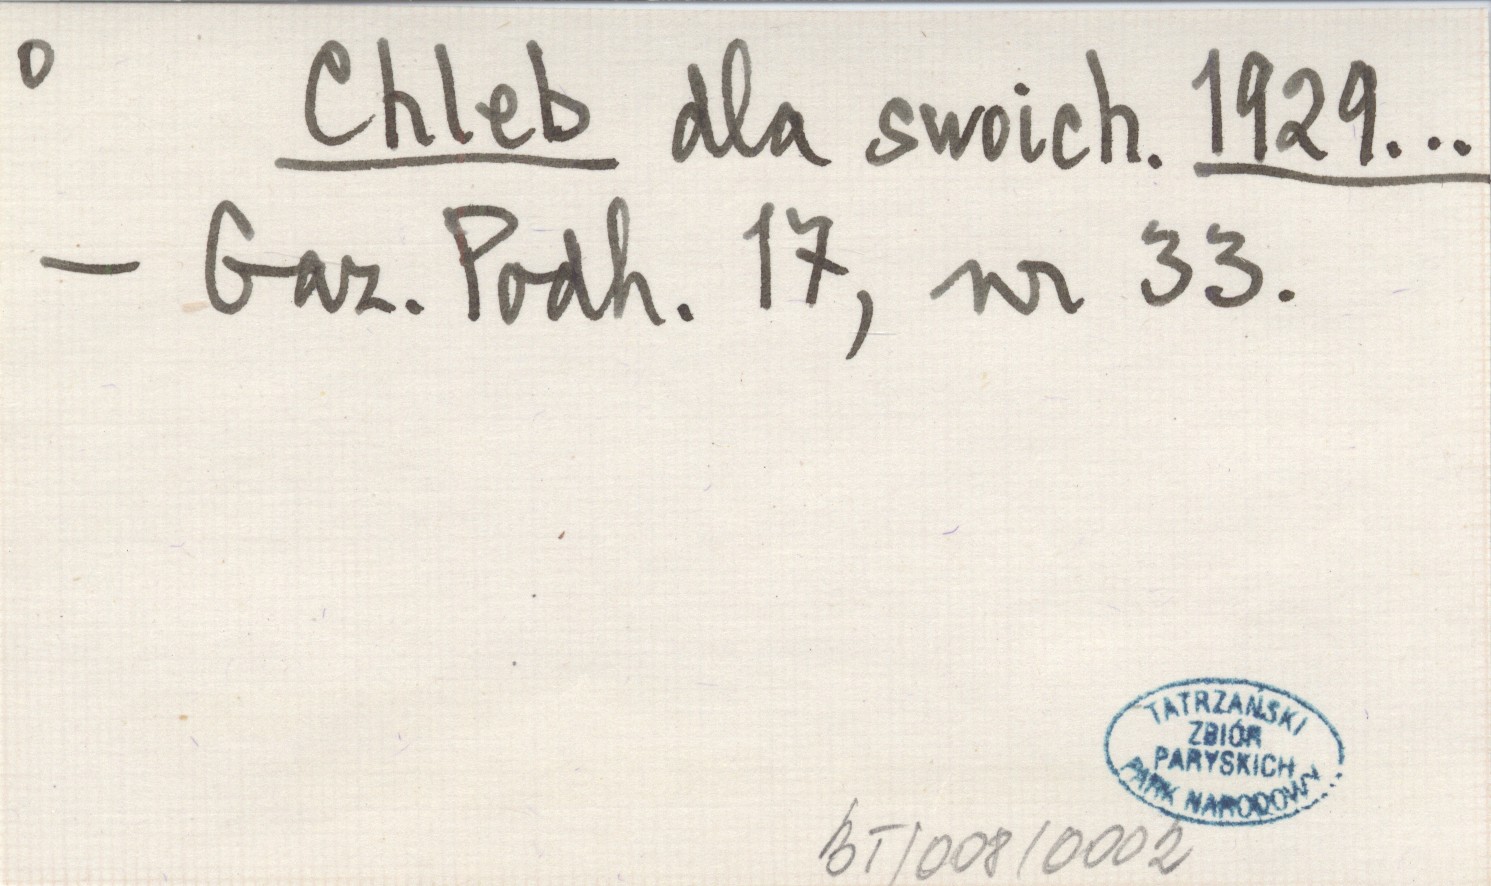 o Chleb dla swoich. 1929...
— Gaz. Podh. 17, nr 33.
TATRZAŃSKI
ZBIÓR
PARYSKICH
PARK NARODOWY
BT/008/0002